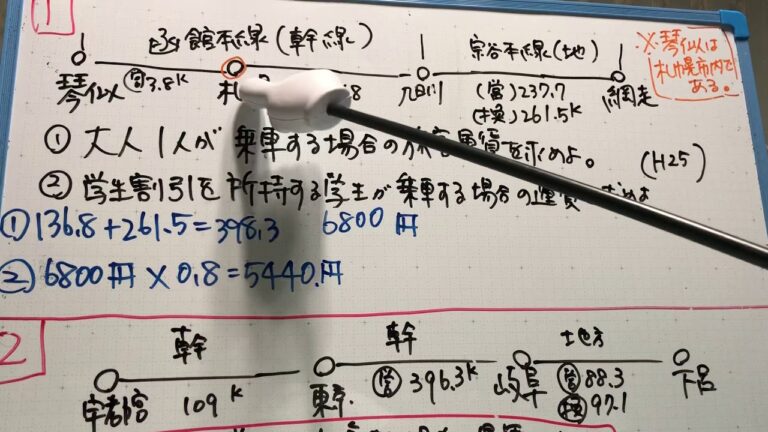 1
函館本線(幹線)
宗谷本線(地)
※琴似は
札幌市内で
ある。
琴似
営3.8K
札
8
旭川
(営)237.7
(換)261.5K
網走
① 大人1人が乗車する場合の旅客運賃を求めよ。 (H25)
② 学生割引を所持する学生が乗車する場合の運賃
① 136.8+261.5=398.3 6800円
② 6800円×0.8=5440円
2
幹
幹
地方
宇都宮
109K
東京
営396.3K
岐阜
営88.3
換97.1
下呂